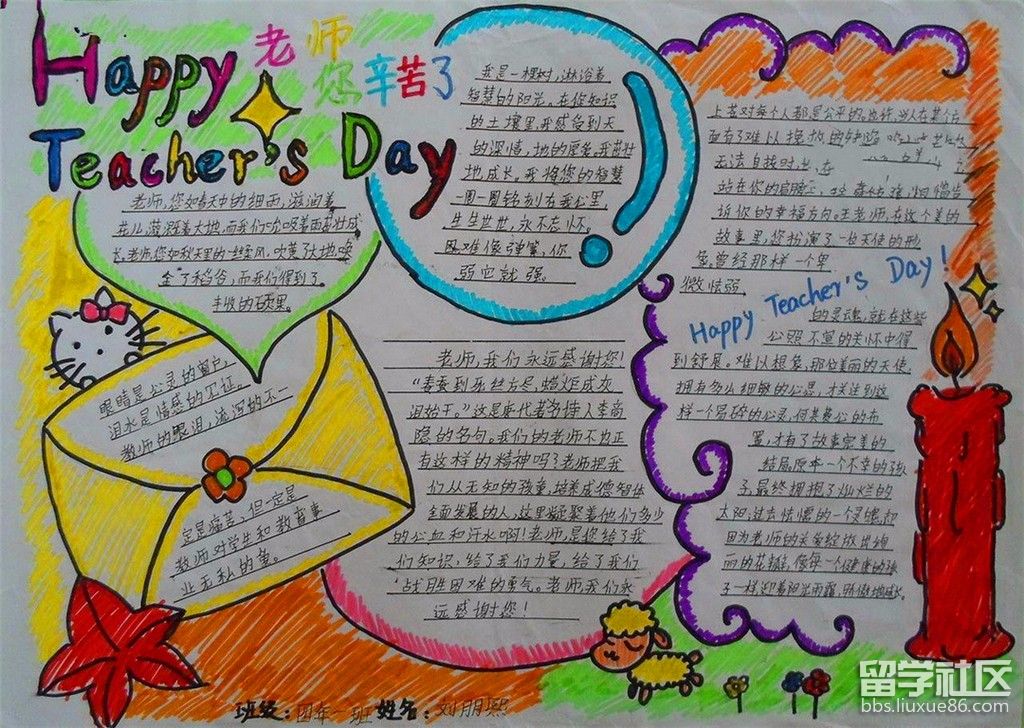 Happy
Teacher's Day
老师
您辛苦了
老师,您如春天中的细雨,滋润着
花儿,滋润着大地,而我们吮吸着雨露壮成
长,老师,您如秋天里的一丝柔风,吹黄了大地,唤
金了稻谷,而我们得到了
丰收的硕果。
我是一棵树,淋浴着
智慧的阳光,在您知识
的土壤里,我感受到天
的深情,地的厚爱,我茁壮
地成长,我将您的智慧
一圈一圈铭刻在我心里,
生生世世,永不忘怀。
困难像弹簧,你
弱它就强。
眼睛是心灵的窗户,
泪水是情感的见证。
教师的眼泪,流泻的不一
定是痛苦,但一定是
教师对学生和教育事
业无私的爱。
老师,我们永远感谢您!
“春蚕到死丝方尽,蜡炬成灰
泪始干。”这是唐代著名诗人李商
隐的名句。我们的老师不也正
有这样的精神吗?老师把我
们从无知的孩童,培养成德智体
全面发展的人,这里凝聚着他们多少
的心血和汗水啊!老师,是您给了我
们知识,给了我们力量,给了我们
战胜困难的勇气。老师,我们永
远感谢您!
上苍对每个人都是公平的。也许,当人在某个方
面有了难以挽救的缺陷
无法自拔时,
站在你的肩膀
诉你的幸福方向。王老师,在这个美的
故事里,您扮演了一位天使的形
象。曾经那样一个卑
微怯弱
Happy Teacher's Day!
的灵魂,就在这些
心照不宣的关怀中得
到舒展。难以想象,那位美丽的天使,
拥有多么细腻的心思,才送到这
样一个易碎的心灵,何其费心的布
置,才有了故事完美的
结局,原本一个不幸的孩
子,最终拥抱了灿烂的
太阳;过去怯懦的一个灵魂,却
因为老师的关爱绽放出绚
丽的花瓣,像每一个健康的孩
子一样,迎着阳光雨露,骄傲地成长。
班级:四年一班 姓名:刘朋熙
留学社区
bbs.liuxue86.com